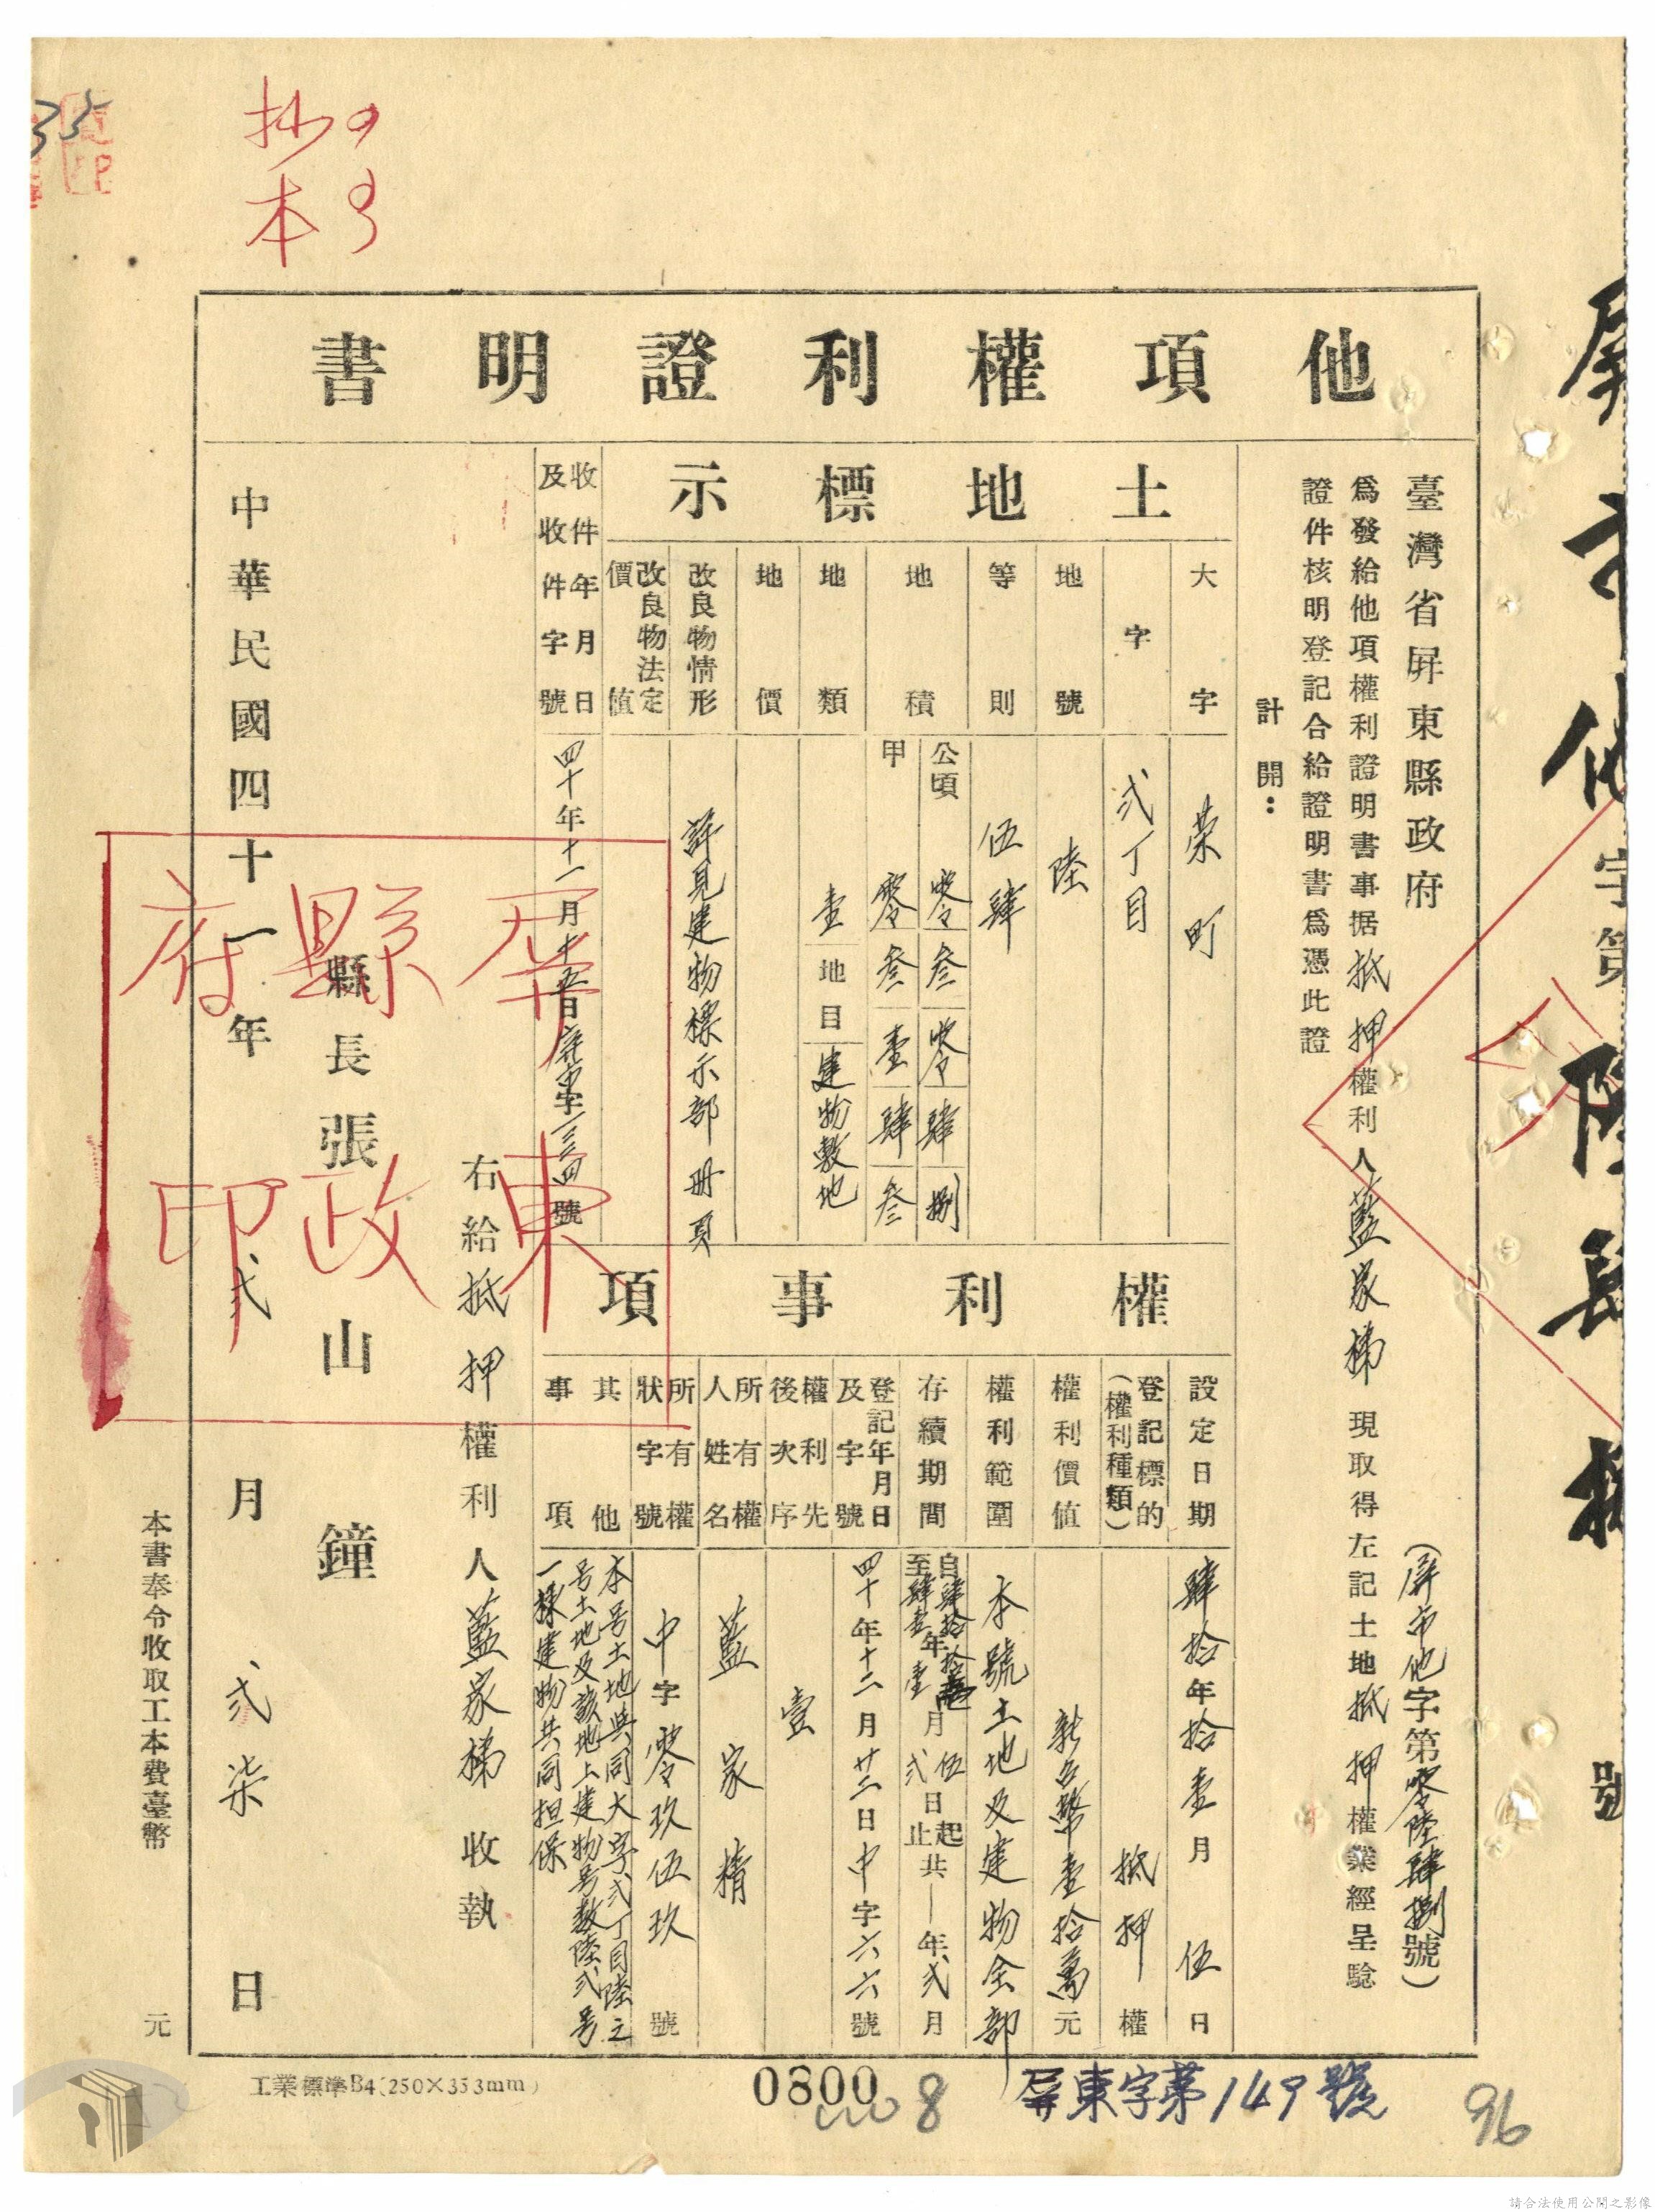 抄
本
他項權利證明書
臺灣省屏東縣政府
(屏市他字第零陸肆捌號)
為發給他項權利證明書事据抵押權利人藍家梯現取得左記土地抵押權業經呈驗
證件核明登記合給證明書為憑此證
計開:
土地標示
大字 榮町
字 弍丁目
地號 陸
等則 伍肆
地積 公頃 零叁零肆捌
甲 零叁壹肆叁
地類 壹 地目 建物敷地
地價
改良物情形 詳見建物標示部 冊 頁
改良物法定價值
收件年月日及收件字號 四十年十一月十五日屏市字一三三四號
權利事項
設定日期 肆拾年拾壹月伍日
登記標的(權利種類) 抵押權
權利價值 新台幣壹拾萬元
權利範圍 本號土地及建物全部
存續期間 自肆拾年拾壹月伍日起
至肆壹年壹月弍日止共一年弍月
登記年月日及字號 四十年十二月廿三日中字六六號
權利先後次序 壹
所有權人姓名 藍家精
所有權狀字號 中字零玖伍玖號
其他事項 本号土地與同大字弍丁目陸之
号土地及該地上建物号數陸弍号
一棟建物共同担保
右給抵押權利人藍家梯收執
縣長張山鐘
中華民國四十一年弍月弍柒日
屏東縣政府印
本書奉令收取工本費臺幣 元
工業標準B4(250×353mm)
0800
8
屏東字第149號
96
35
請合法使用公開之影像